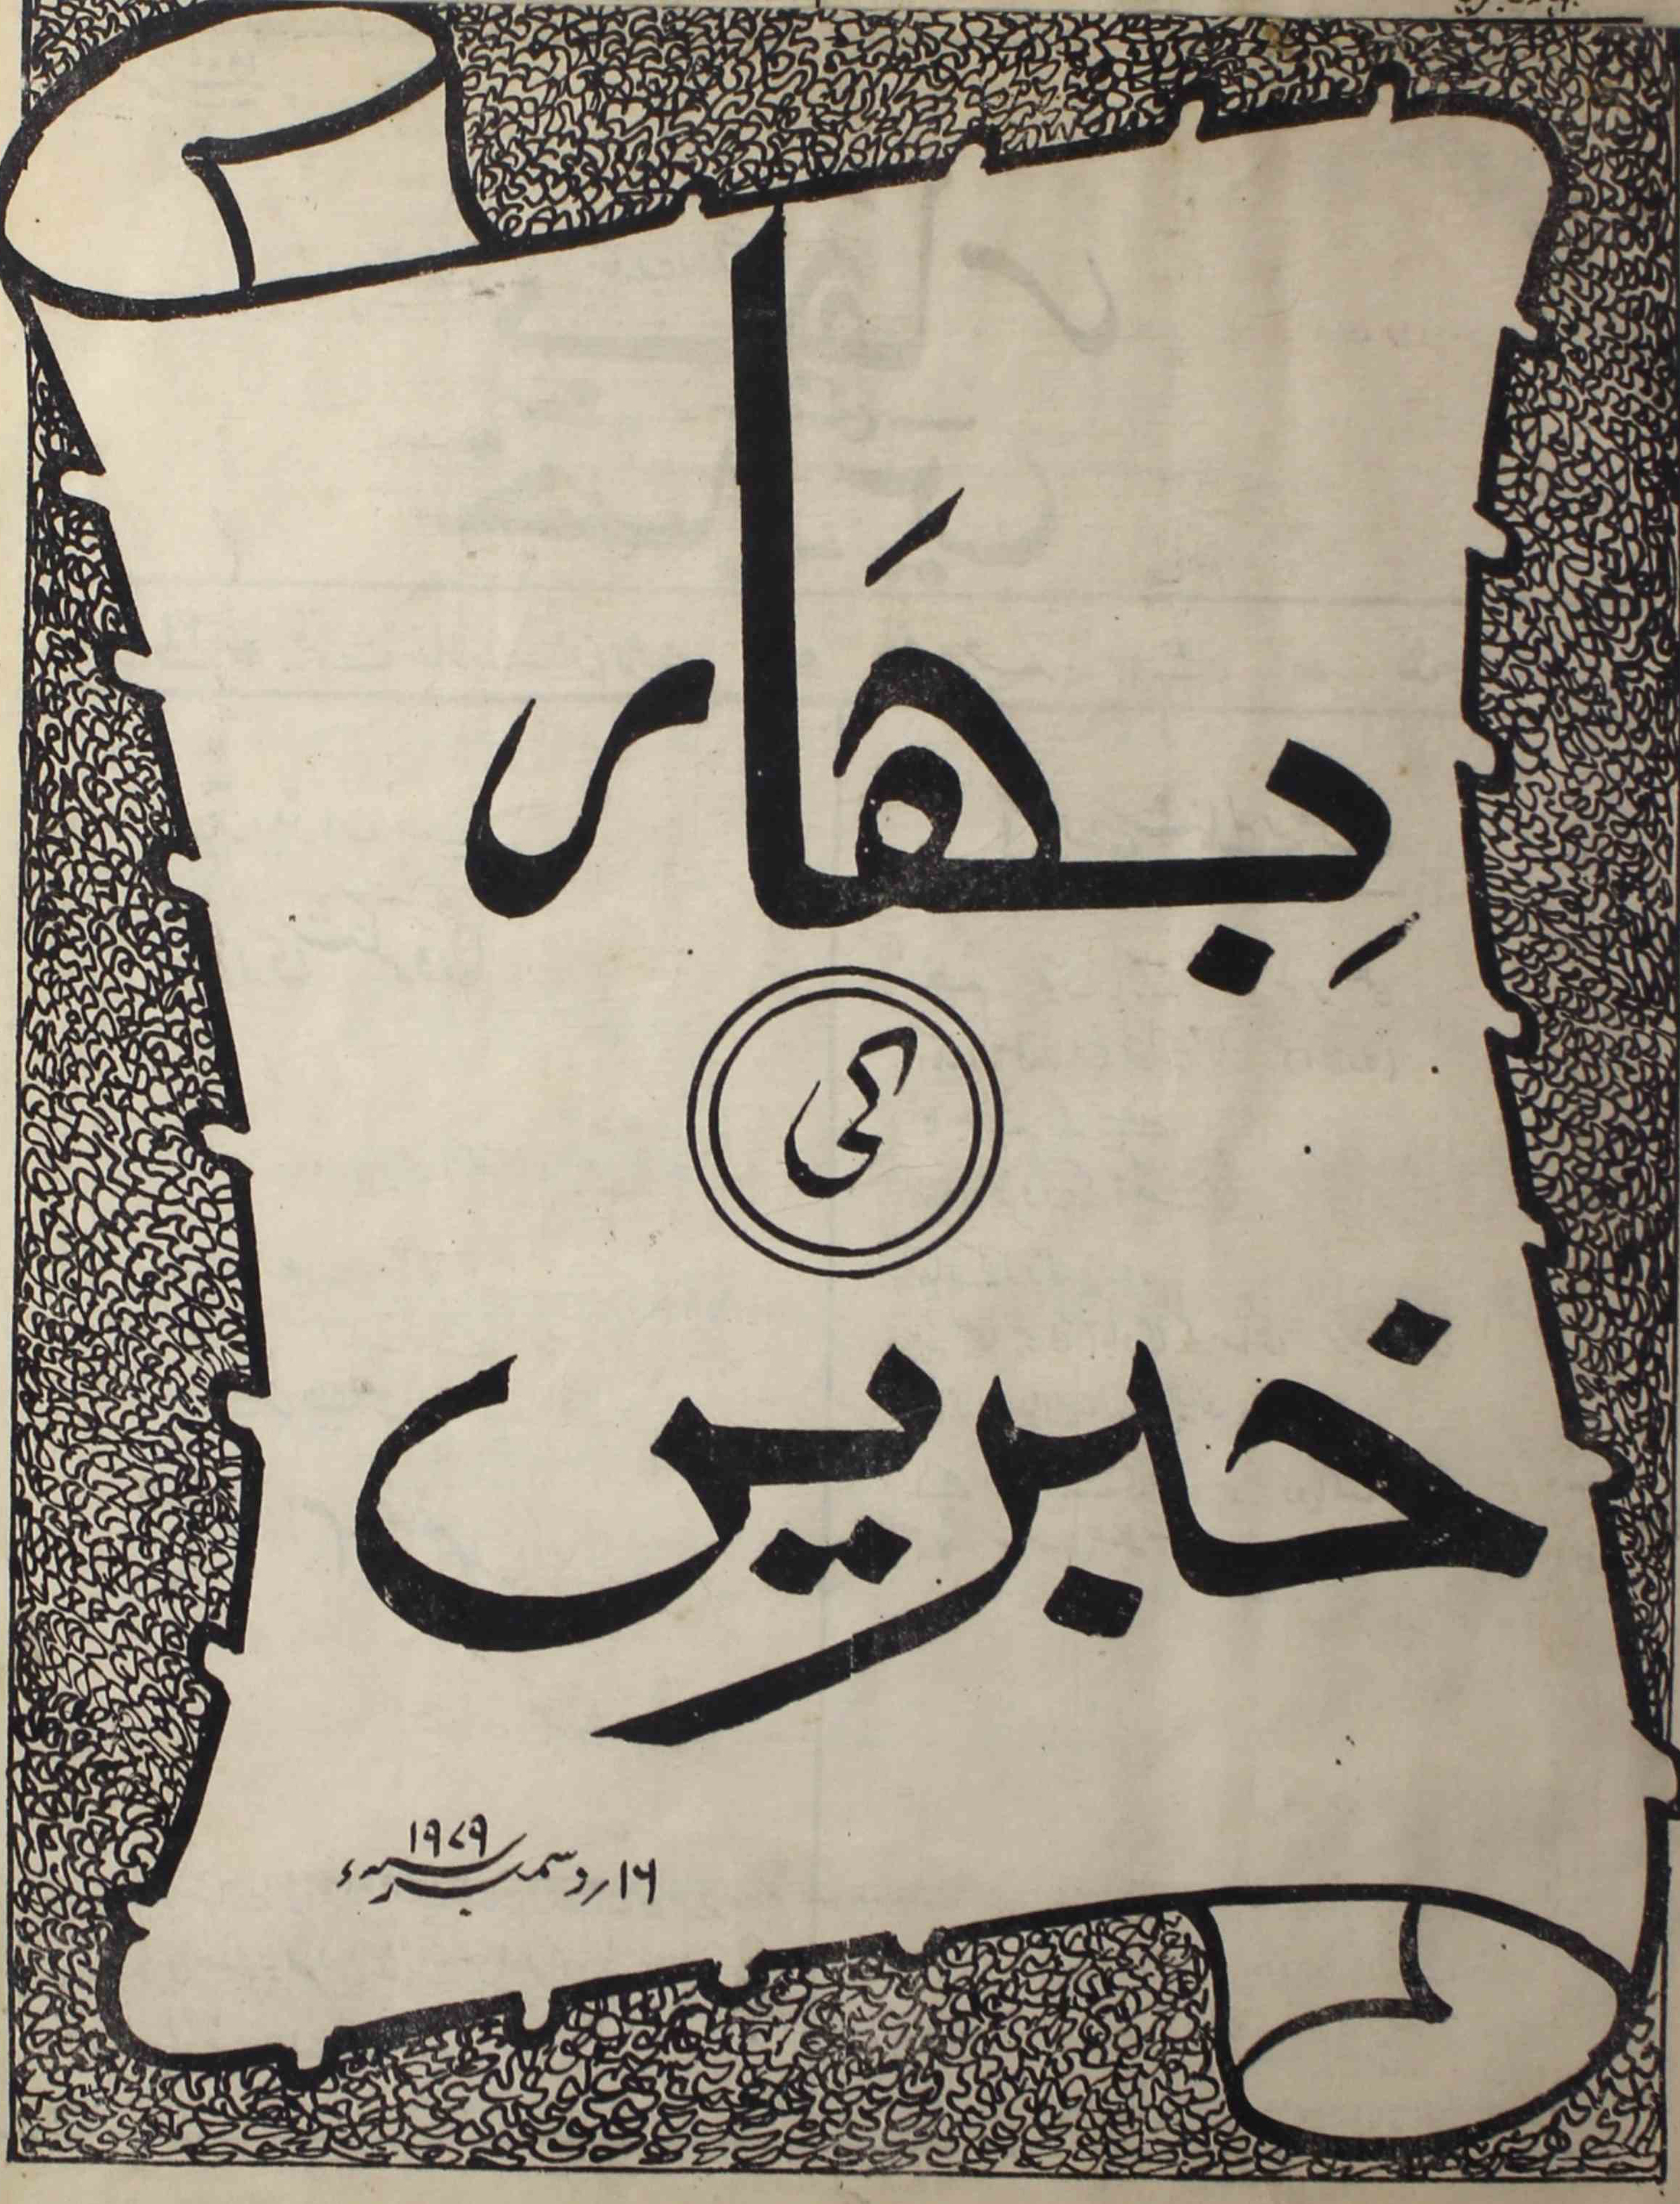 بِہَار
کی
خبریں
۱۶ر دسمبر ۱۹۷۹ء